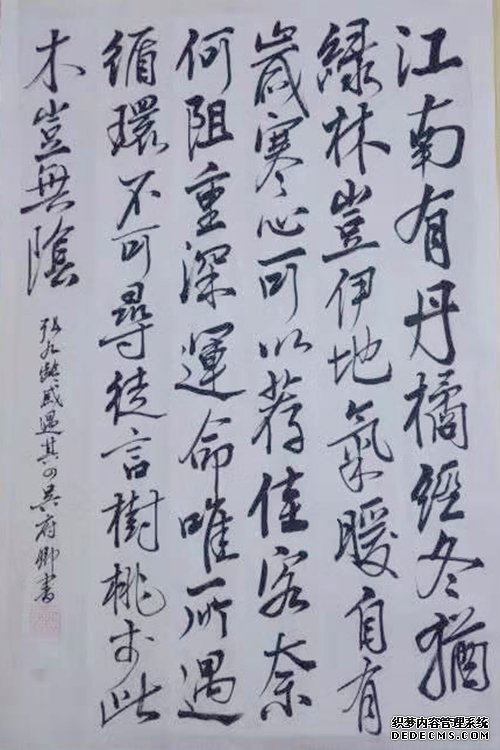 江南有丹橘經冬猶
綠林豈伊地氣暖自有
歲寒心可以荐佳客奈
何阻重深運命唯所遇
循環不可尋徒言樹桃李此
木豈無陰
張九齡感遇其四吳府卿書
织梦内容管理系统
DEDECMS.COM